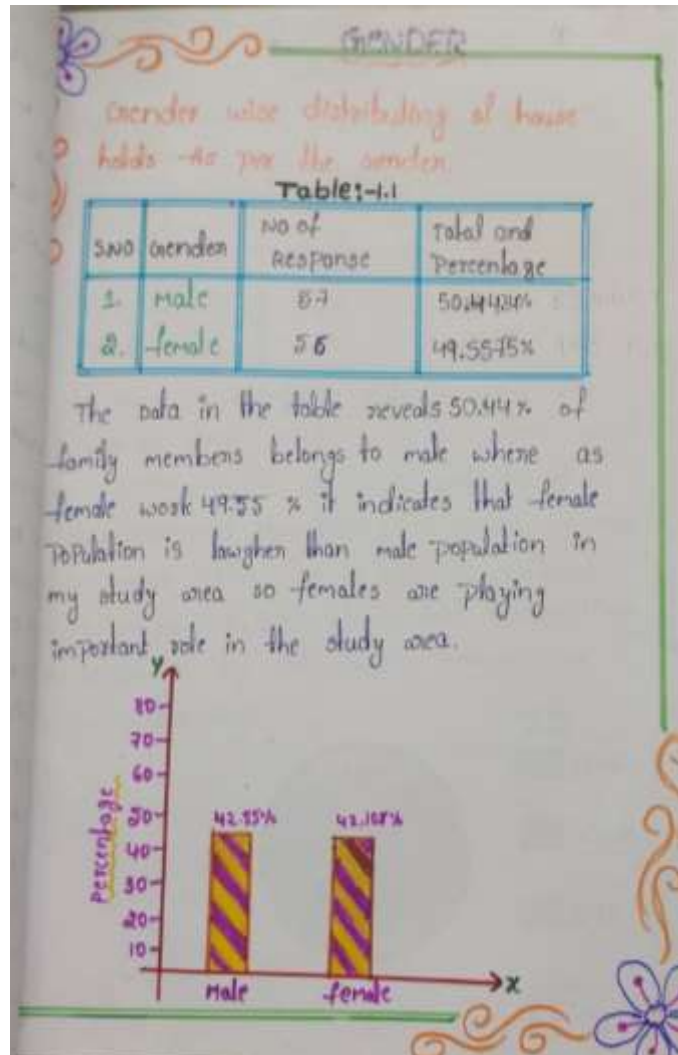 GENDER
Gender wise distributing of house
holds As per the gender.
Table:-1.1
S.NO Gender No of Response Total and Percentage
1. Male 57 50.4424%
2. female 56 49.5575%
The Data in the table reveals 50.44% of
family members belongs to male where as
female work 49.55 % it indicates that female
Population is lawgher than male population in
my study area so females are playing
important role in the study area.
Y
80
70
60
50
40
30
20
10
Percentage
42.55% 42.108%
Male female
X